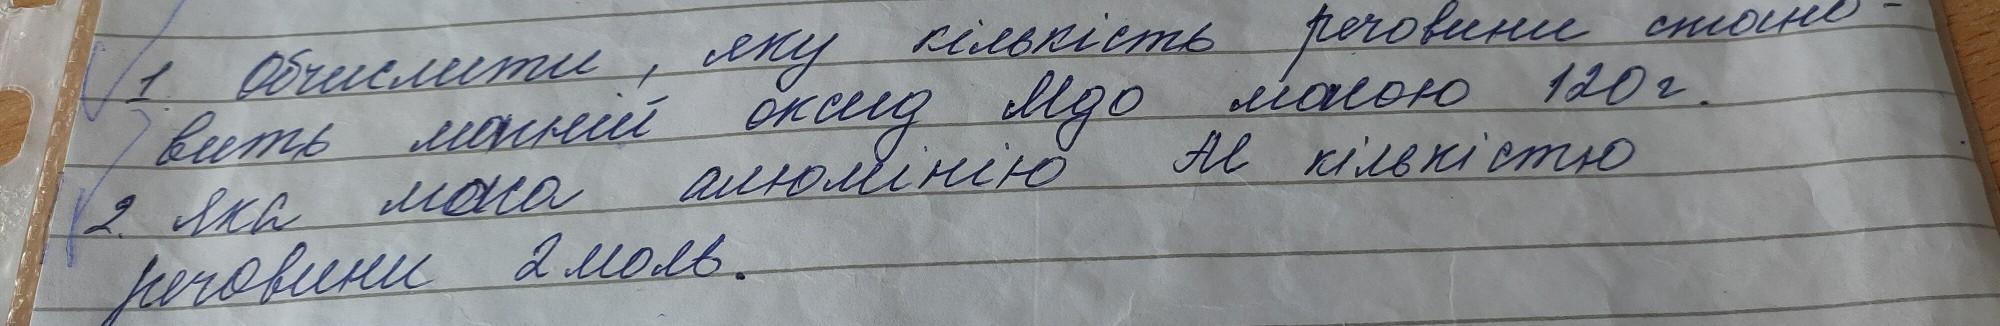 1. Обчислити, яку кількість речовини стано-
вить магній оксид MgO масою 120 г.
2. Яка маса алюмінію Al кількістю
речовини 2 моль.